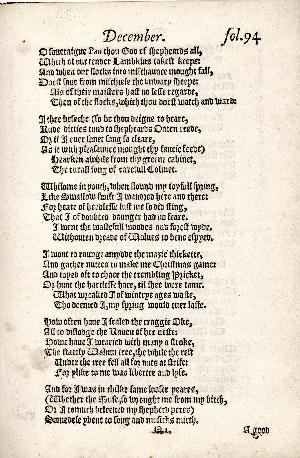 December. fol.94
O soueraigne Pan thou God of shepheards all,
Which of our tender Lambkins takest keepe:
And when our flocks into mischaunce mought fall,
Doest saue from mischiefe the vnwary sheepe:
Als of their maisters hast no lesse regarde,
Then of the flocks, which thou doest watch and ward:
I thee beseche (so be thou deigne to heare,
Rude ditties tund to shepheards Oaten reede,
Or if I euer sonet song so cleare,
As it with pleasaunce mought thy fancie feede)
Hearken awhile from thy greene cabinet,
The rurall song of carefull Colinet.
Whilome in youth, when flowrd my ioyfull spring,
Like Swallow swift I wandred here and there:
For heate of heedlesse lust me so did sting,
That I of doubted daunger had no feare.
I went the wastefull woodes and forest wyde,
Withouten dreade of Wolues to bene espyed.
I wont to raunge amydde the mazie thickette,
And gather nuttes to make me Christmas game:
And ioyed oft to chace the trembling Pricket,
Or hunt the hartlesse hare, til shee were tame.
What wreaked I of wintrye ages waste,
Tho deemed I, my spring would euer laste.
How often haue I scaled the craggie Oke,
All to dislodge the Rauen of her neste:
Howe haue I wearied with many a stroke,
The stately Walnut tree, the while the rest
Under the tree fell all for nuts at strife:
For ylike to me was libertee and lyfe.
And for I was in thilke same looser yeares,
(Whether the Muse, so wrought me from my birth,
Or I tomuch beleeued my shepherd peres)
Somedele ybent to song and musicks mirth.
A good